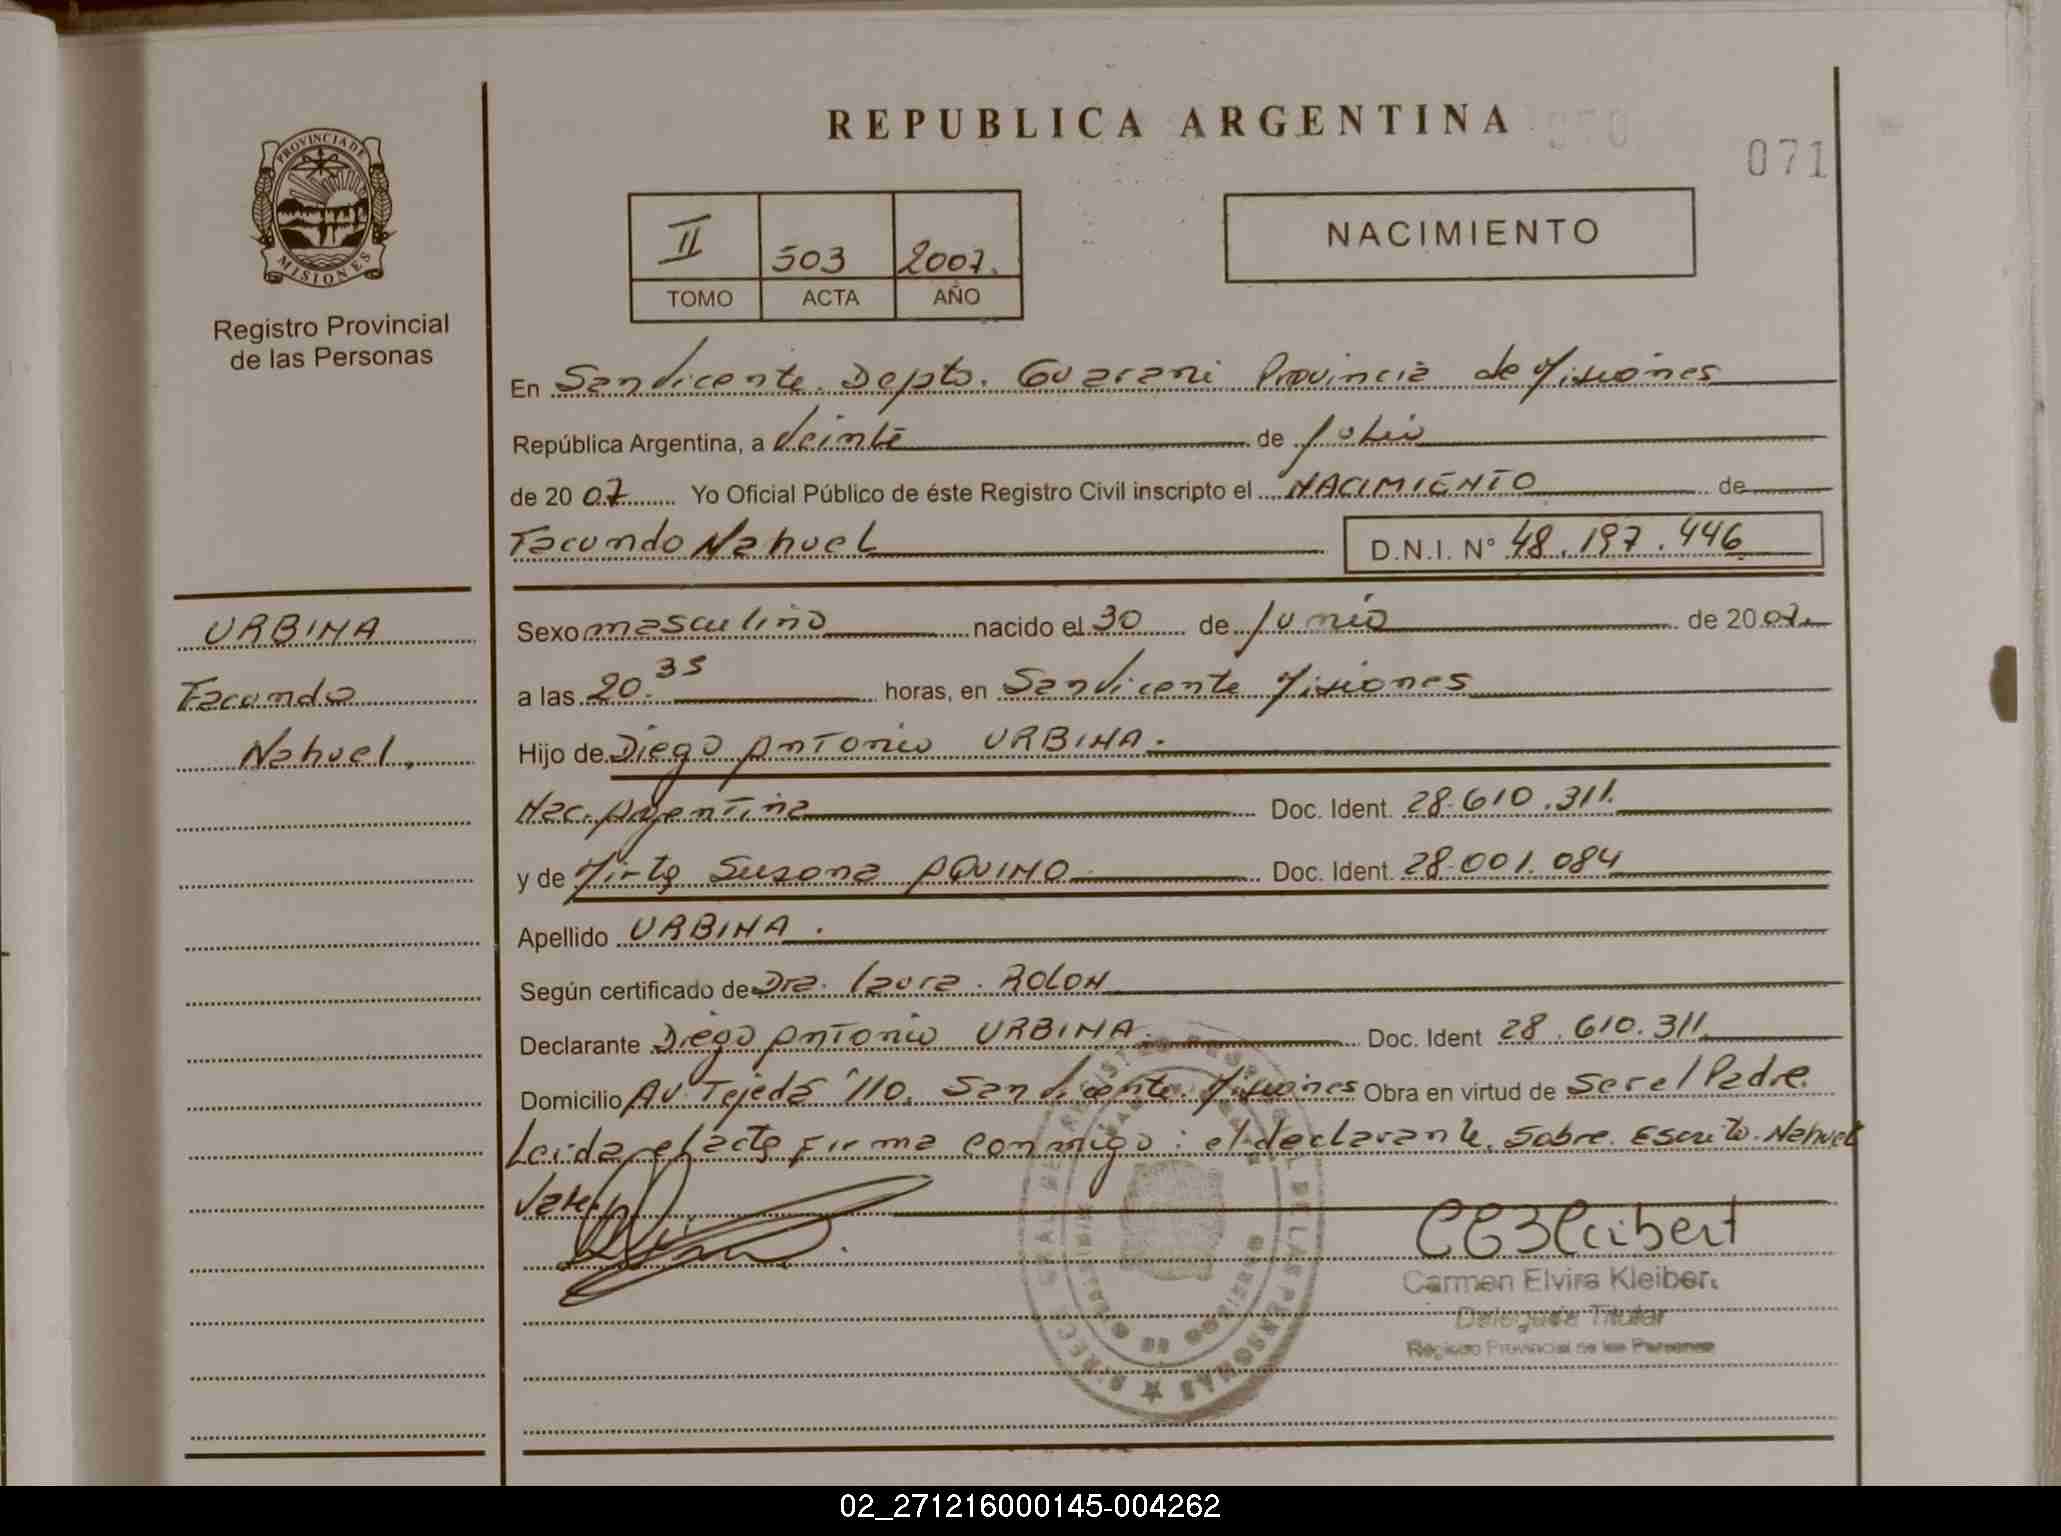 REPUBLICA ARGENTINA
071
PROVINCIA DE
MISIONES
Registro Provincial
de las Personas
II 503 2007.
TOMO ACTA AÑO
NACIMIENTO
En San Vicente. Depto. Guarani Provincia de Misiones
República Argentina, a Veinte de Julio
de 20 07 Yo Oficial Público de éste Registro Civil inscripto el NACIMIENTO de
Facundo Nahuel D.N.I. N° 48.197.446
URBINA
Facundo
Nahuel.
Sexo masculino nacido el 30 de Junio de 20 07.
a las 20.35 horas, en San Vicente Misiones
Hijo de Diego Antonio URBINA.
Nac. Argentina Doc. Ident. 28.610.311.
y de Mirta Susana AQUINO Doc. Ident. 28.001.084
Apellido URBINA.
Según certificado de Dra. Laura. ROLON
Declarante Diego Antonio URBINA. Doc. Ident 28.610.311
Domicilio Av. Tejeda 110. San Vicente. Misiones Obra en virtud de Ser el Padre.
Leida el acta firma conmigo: el declarante. Sobre. Escrito. Nahuel
Vale.
CEKleibert
Carmen Elvira Kleibert
Delegada Titular
Registro Provincial de las Personas
02_271216000145-004262